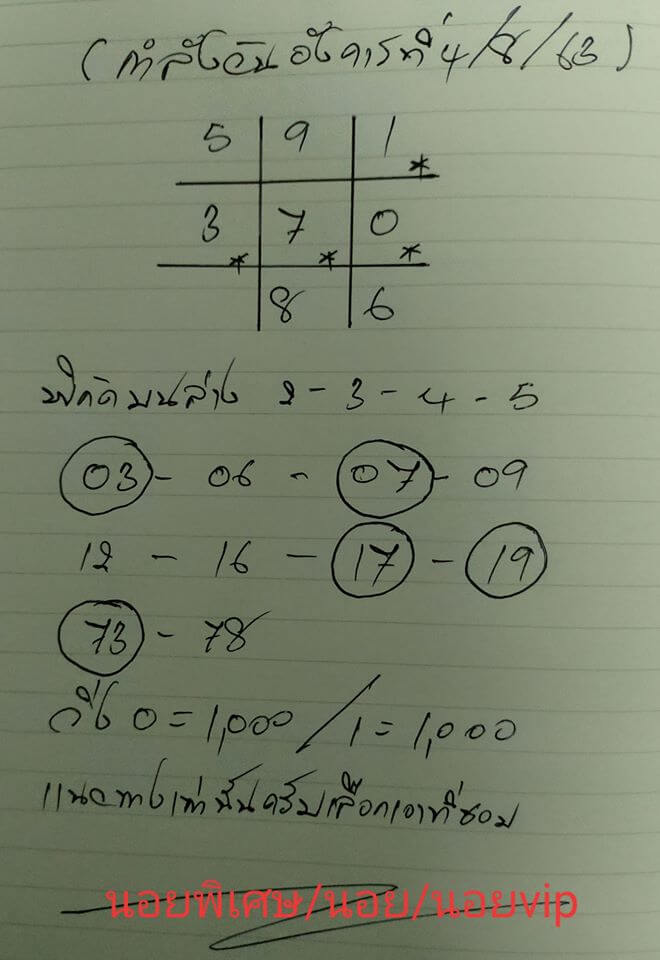 (กำลังวันอังคารที่ 4/8/63)
5 9 1 *
3 * 7 * 0 *
8 6
พิกัดบนล่าง 2 - 3 - 4 - 5
03 - 06 - 07 - 09
12 - 16 - 17 - 19
73 - 78
วิ่ง 0 = 1,000 / 1 = 1,000
แนวทางเท่านั้นครับเลือกเอาที่ชอบ
นอยพิเศษ/นอย/นอยvip